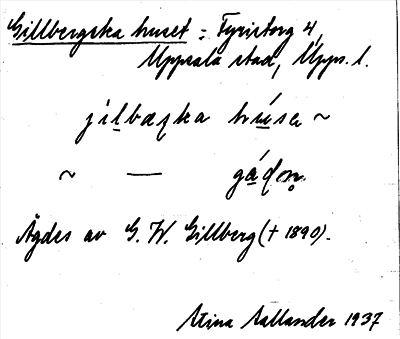 Gillbergska huset : Fyristorg 4,
Uppsala stad, Upps. l.
jílbæʂka hʉ́sɐ ~
~ — gáɖon̥
Ägdes av G. W. Gillberg († 1890).
Stina Sallander 1937